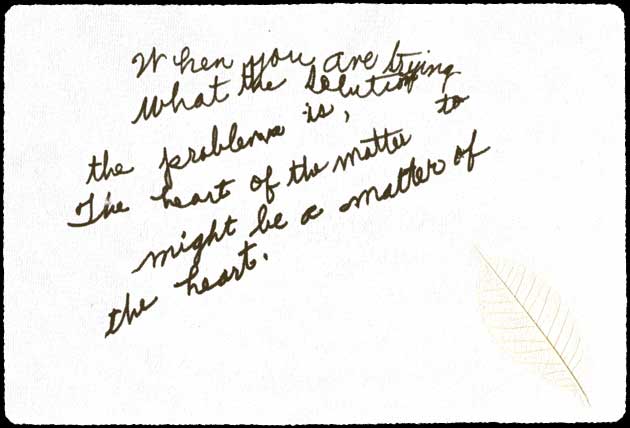 When you are trying
What the solution
the problems is, to
The heart of the matter
might be a matter of
the heart.